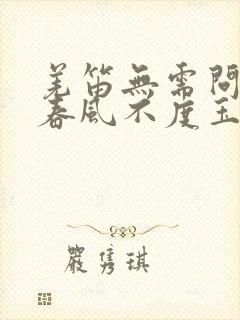 羌笛無需問
春風不度玉
嚴隽琪